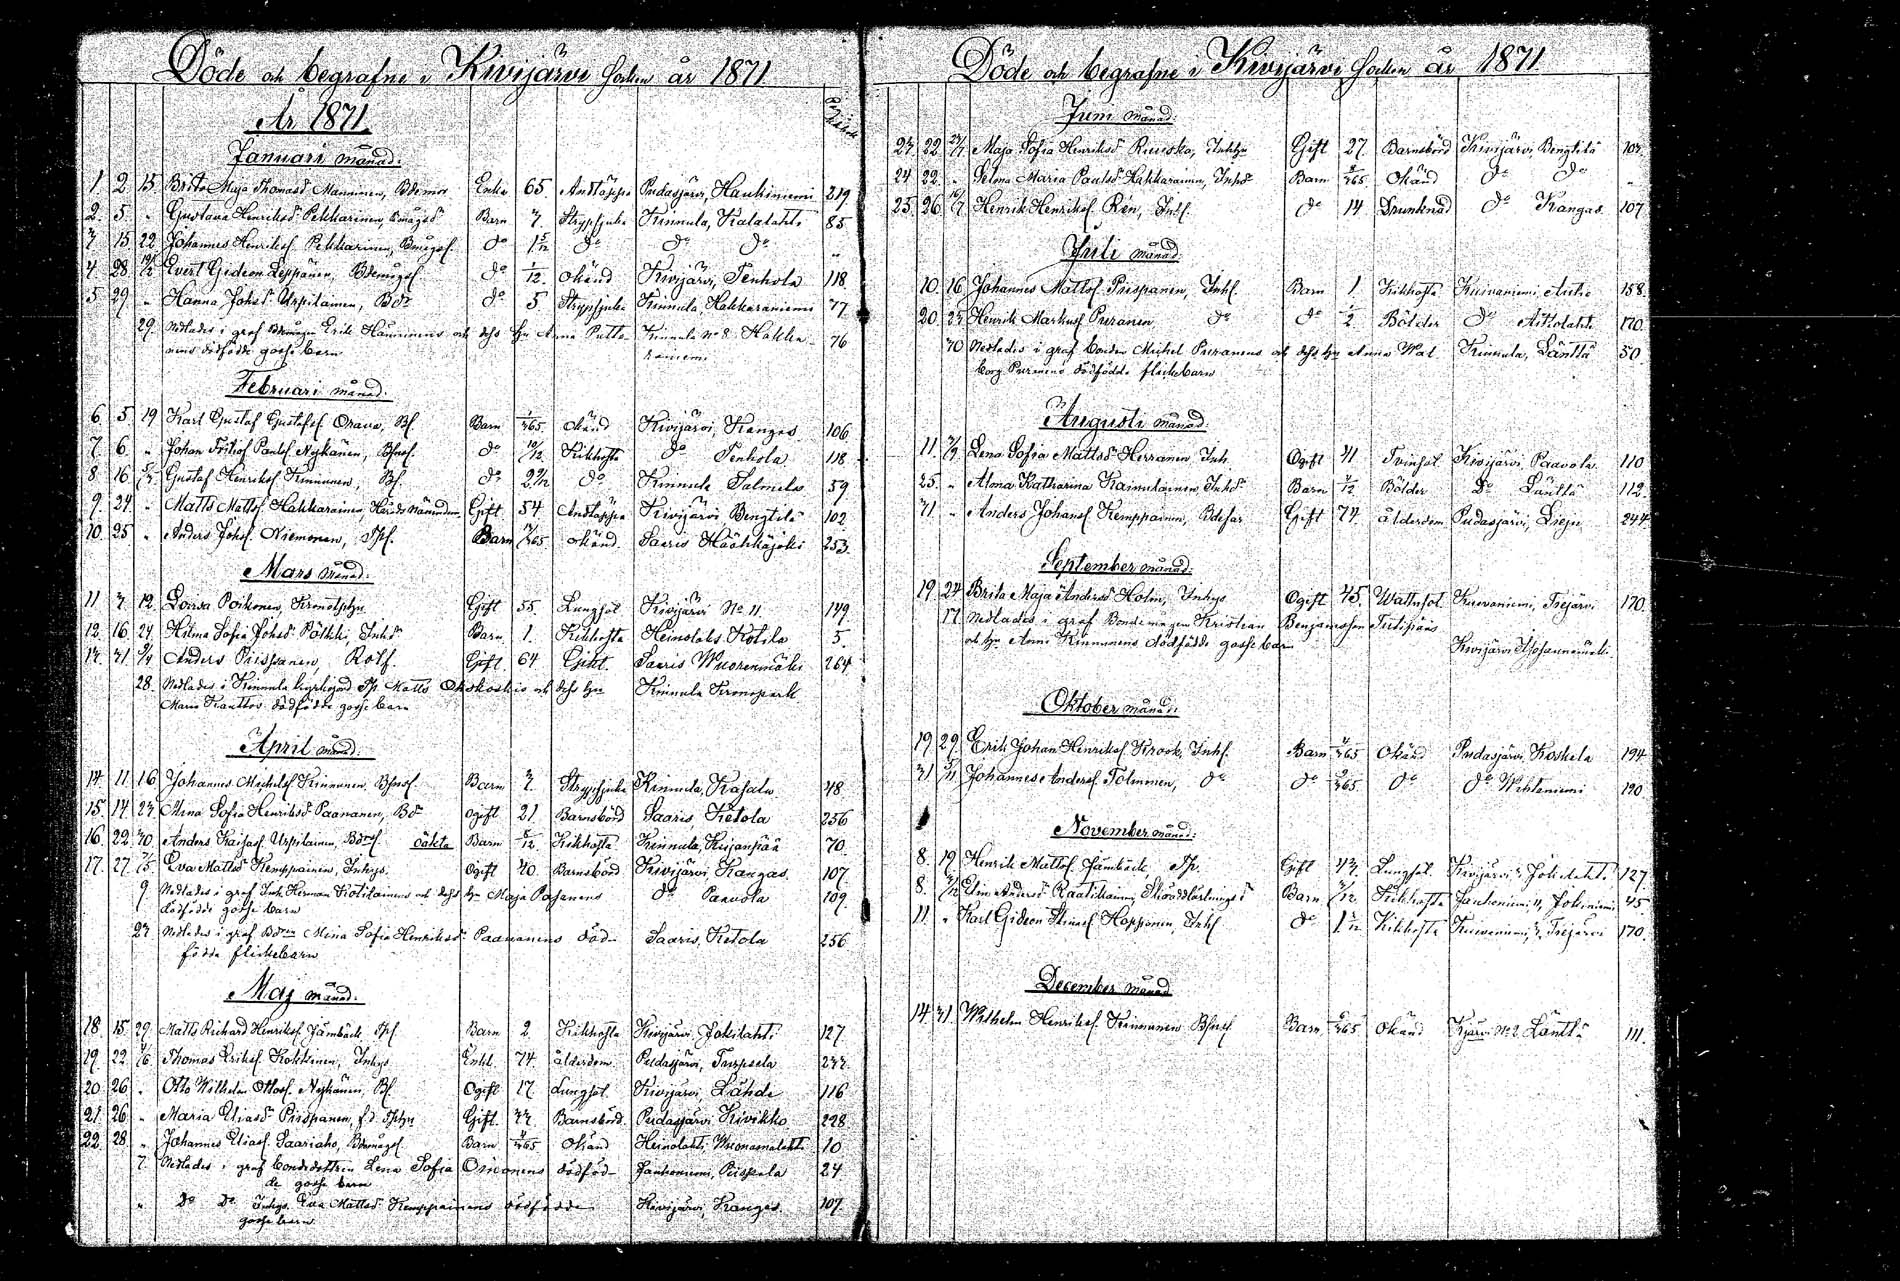 Döde och begrafne i Kivijärvi socken år 1871
År 1871.
Januari månad:
1. 2 15 Brita Maja Thomasd. Manninen, Bdemor Enka 65 Andtäppa Pudasjärvi, Haukiniemi 219
2. 5. " Gustava Henriksd. Pekkarinen, Bmågsd Barn 3. Strypsjuka Kinnula, Kalalahti 85
3 15 22 Johannes Henriksf. Pekkarinen, Bmågsf. do 1 5/12 do do do "
4 28 Evert Gideon Leppänen, Bdemågsf do 1/12 okänd Kivijärvi, Penkola 118
5 29 " Hanna Johsd. Urpilainen, Bdr do 5 Strypsjuka Kinnula, Hakkaraniemi 77
29. Nedlades i graf Bdemågen Erik Hänninens och dess hu Anna Putto- Kinnula No 8 Hakka- 76
nens dödfödde gosse barn raniemi
Februari månad:
6. 5. 19 Karl Gustaf Gustafsf. Orava, Bf. Barn 1/365 okänd Kivijärvi, Kangas 106
7. 6. " Johan Fritiof Paulsf. Nykänen, Bsonsf. do 10/12 Kikhosta do Penkola 118
8. 16. Gustaf Henriksf. Kinnunen, Bf. do 2 do Kinnula Salmela 59
9. 24. " Matts Mattsf. Hakkarainen, Härads Nämndem. Gift 54 Andtäppa Kivijärvi, Bengtilä 102
10. 25 " Anders Johsf. Niemonen, Spf. Barn okänd. Saaris Häähkäjoki 253.
Mars månad:
11 3. 12. Lovisa Poikonen, Kronotphu Gift 55. Lungsot Kivijärvi No 11 149
12. 16. 24. Hilma Sofia Johsd. Pölkki, Inhd Barn 1. Kikhosta Heinolaks. Kotila 5.
13. 31. Anders Piispanen, Rotf. Gift. 64. Gikt. Saaris Wuorenmäki 264
28. Nedlades i Kinnula kyrkogård Sp. Matts Okskoskis och dess hu Kinnula Kronopark
Maria Kauttos dödfödde gosse barn
April månad:
14. 11. 16. Johannes Michelsf. Kinnunen, Bsonsf Barn 3. Strypsjuka Kinnula, Kasala 48
15. 14. 23. Mina Sofia Henriksd. Paananen, Bd ogift 21. Barnsbörd Saaris Ketola 256
16. 22. 30. Anders Kaisasf. Urpilainen, Bdrsf. oäkta Barn 5/12 Kikhosta Kinnula, Keijanpää 70.
17. 27. Eva Mattsd. Kemppainen, Inhys. Ogift 40. Barnsbörd Kivijärvi, Kangas. 107.
9. Nedlades i graf Inh. Herman Kotilainens och dess hu Maja Pasanens do Paavola 109
dödfödde gosse barn
23. Nedlades i graf Bdrn Mina Sofia Henriksd. Paananens död- Saaris, Ketola 256
födda flickebarn
Maj månad:
18. 15. 29. Matts Richard Henriksf. Jämbäck, Spf Barn 2. Kikhosta Kivijärvi, Jokilahti 127
19. 22. Thomas Eriksf. Kokkinen, Inhys Enkl. 74. ålderdom Pudasjärvi, Turpsela 233
20. 26. " Otto Wilhelm Ottosf. Nykänen, Bf. Ogift 17. Lungsot Kivijärvi, Lähde 116
21. 26. " Maria Eliasd. Piispanen, f.d. Sphu Gift. 33. Barnsbörd. Pudasjärvi, Kivikko 228
22. 28. " Johannes Eliasf. Saariaho, Bdemågsf. Barn okänd Heinolahti, Wuonamolahti 10
7. Nedlades i graf bondedottren Lena Sofia Oinonens dödföd- Jauhoniemi, Piispala 24.
de gosse barn
" do do Inhys. Eva Mattsd. Kemppainens dödfödde Kivijärvi, Kangas. 107
gosse barn.
Döde och begrafne i Kivijärvi socken år 1871
Juni månad:
23. 22. Maja Sofia Henriksd Ruuska, Inhhu Gift 27. Barnsbörd Kivijärvi, Bengtilä 103.
24 22. " Selma Maria Paulsd. Hakkarainen, Inhd Barn okänd do do "
25. 26 Henrik Henriksf. Rén, Inhf. do 14 Drunknad do Kangas. 107
Juli månad
10. 16 Johannes Mattsf. Piispanen, Inhf. Barn 1. Kikhosta Kuivaniemi, Autio 158.
20. 23 Henrik Markusf Puranen do do 1/2 Bölder do Aittolahti 170.
30 Nedlades i graf bonden Michel Puranens och dess hu Anna Wal- Kinnula, Länttä 50
borg Puranens dödfödda flickebarn
Augusti månad:
11. Lena Sofia Mattsd. Herranen, Inh. Ogift 31 Tvinsot Kivijärvi, Paavola 110
25. " Alma Katharina Kainulainen, Inhd Barn Bölder do Länttä 112.
31. " Anders Johansf. Kemppainen, Bdefar Gift 74. ålderdom Pudasjärvi, Lieju 244
September månad:
19. 24 Brita Maja Andersd Holm, Inhys Ogift 45. Wattusot. Kuivaniemi, Trejärvi 170.
17. Nedlades i graf Bondemågen Kristian Benjamsson Tiitipäis
och hu. Anna Kinnunens dödfödde gosse barn Kivijärvi, Johannemäki.
Oktober månad:
19 29. Erik Johan Henriksf. Krook, Inhf. Barn okänd Pudasjärvi, Koskela 194
31 Johannes Andersf. Tolmunen, do do do do Wihtaniemi 190
November månad:
8. 19 Henrik Mattsf. Jämbäck, Sp. Gift 43. Lungsot. Kivijärvi, Jokilahti 127.
8. Elin Andersd. Raatikainen, Skräddlärlingsd Barn Kikhosta Jauhoniemi 11, Jokiniemi 45.
11. " Karl Gideon Hopponen, Inhf do Kikhosta Kuivaniemi, Trejärvi 170.
December månad
14. 31. Wilhelm Henriksf. Kinnunen Bsonsf Barn okänd Kjärvi No 2. Länttä 111.